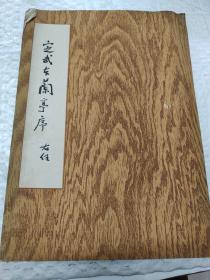 定武本蘭亭序 右任